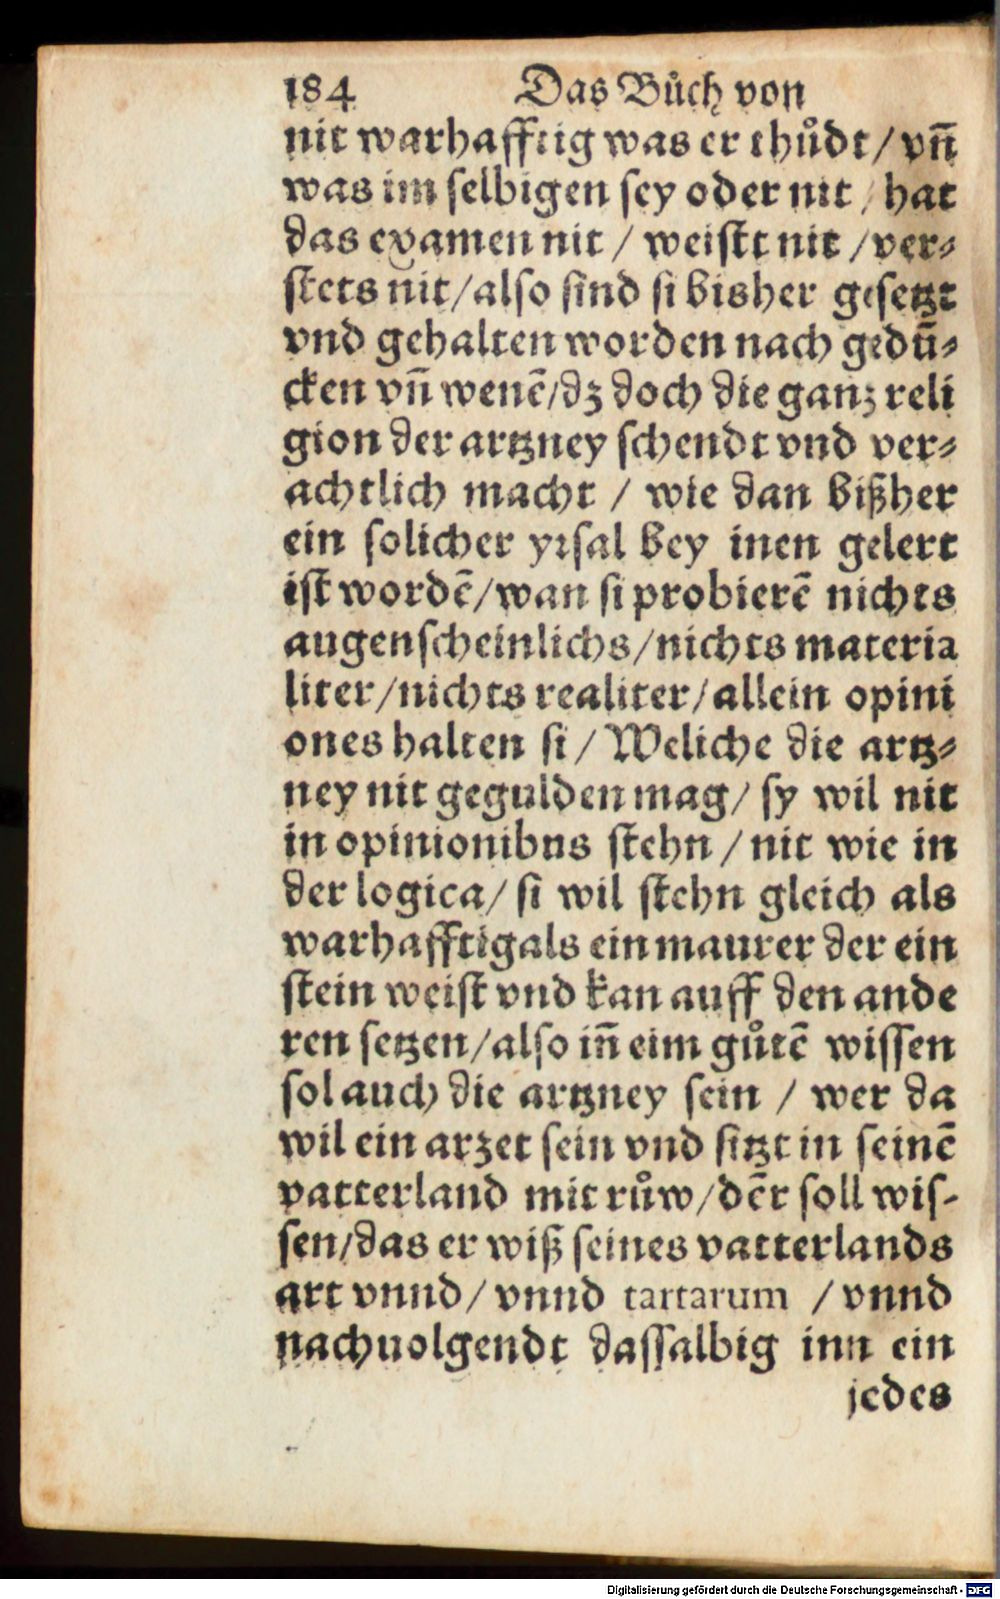 184 Das Bůch von
nit warhafftig was er thůdt / vñ
was im selbigen sey oder nit / hat
das examen nit / weistt nit / ver⸗
stets nit / also sind si bisher gesetzt
vnd gehalten worden nach gedū⸗
cken vñ wenē / dz doch die ganz reli
gion der artzney schendt vnd ver⸗
achtlich macht / wie dan bißher
ein solicher yrsal bey inen gelert
ist wordē / wan si probierē nichts
augenscheinlichs / nichts materia
liter / nichts realiter / allein opini
ones halten si / Weliche die artz⸗
ney nit gegulden mag / sy wil nit
in opinionibus stehn / nit wie in
der logica / si wil stehn gleich als
warhafftig als ein maurer der ein
stein weist vnd kan auff den ande
ren setzen / also iñ eim gůtē wissen
sol auch die artzney sein / wer da
wil ein arzet sein vnd sitzt in seinē
vatterland mit růw / dēr soll wis-
sen / das er wiß seines vatterlands
art vnnd / vnnd tartarum / vnnd
nachuolgendt dassalbig inn ein
jedes
Digitalisierung gefördert durch die Deutsche Forschungsgemeinschaft - DFG